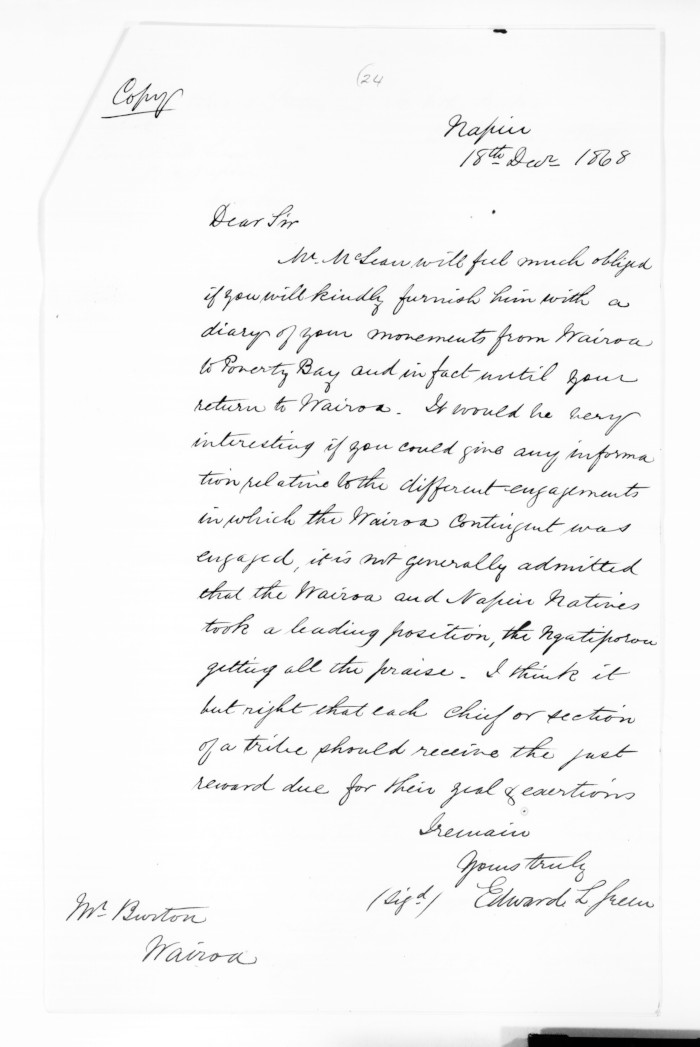 (24
Copy
Napier
18th Decr 1868
Dear Sir
Mr. McLean will feel much obliged
if you will kindly furnish him with a
diary of your movements from Wairoa
to Poverty Bay and in fact until your
return to Wairoa. It would be very
interesting if you could give any informa
tion relative to the different engagements
in which the Wairoa Contingent was
engaged, it is not generally admitted
that the Wairoa and Napier Natives
took a leading position, the Ngatiporou
getting all the praise. I think it
but right that each chief or section
of a tribe should receive the just
reward due for their zeal & exertions
I remain
Yours truly
(Sigd) Edward L Green
Mr. Burton
Wairoa